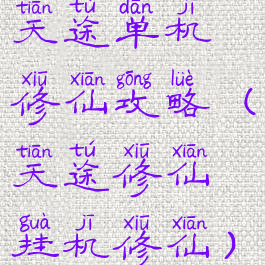 tiān tú dān jī
天途单机
xiū xiān gōng lüè
修仙攻略（
tiān tú xiū xiān
天途修仙
guà jī xiū xiān
挂机修仙）